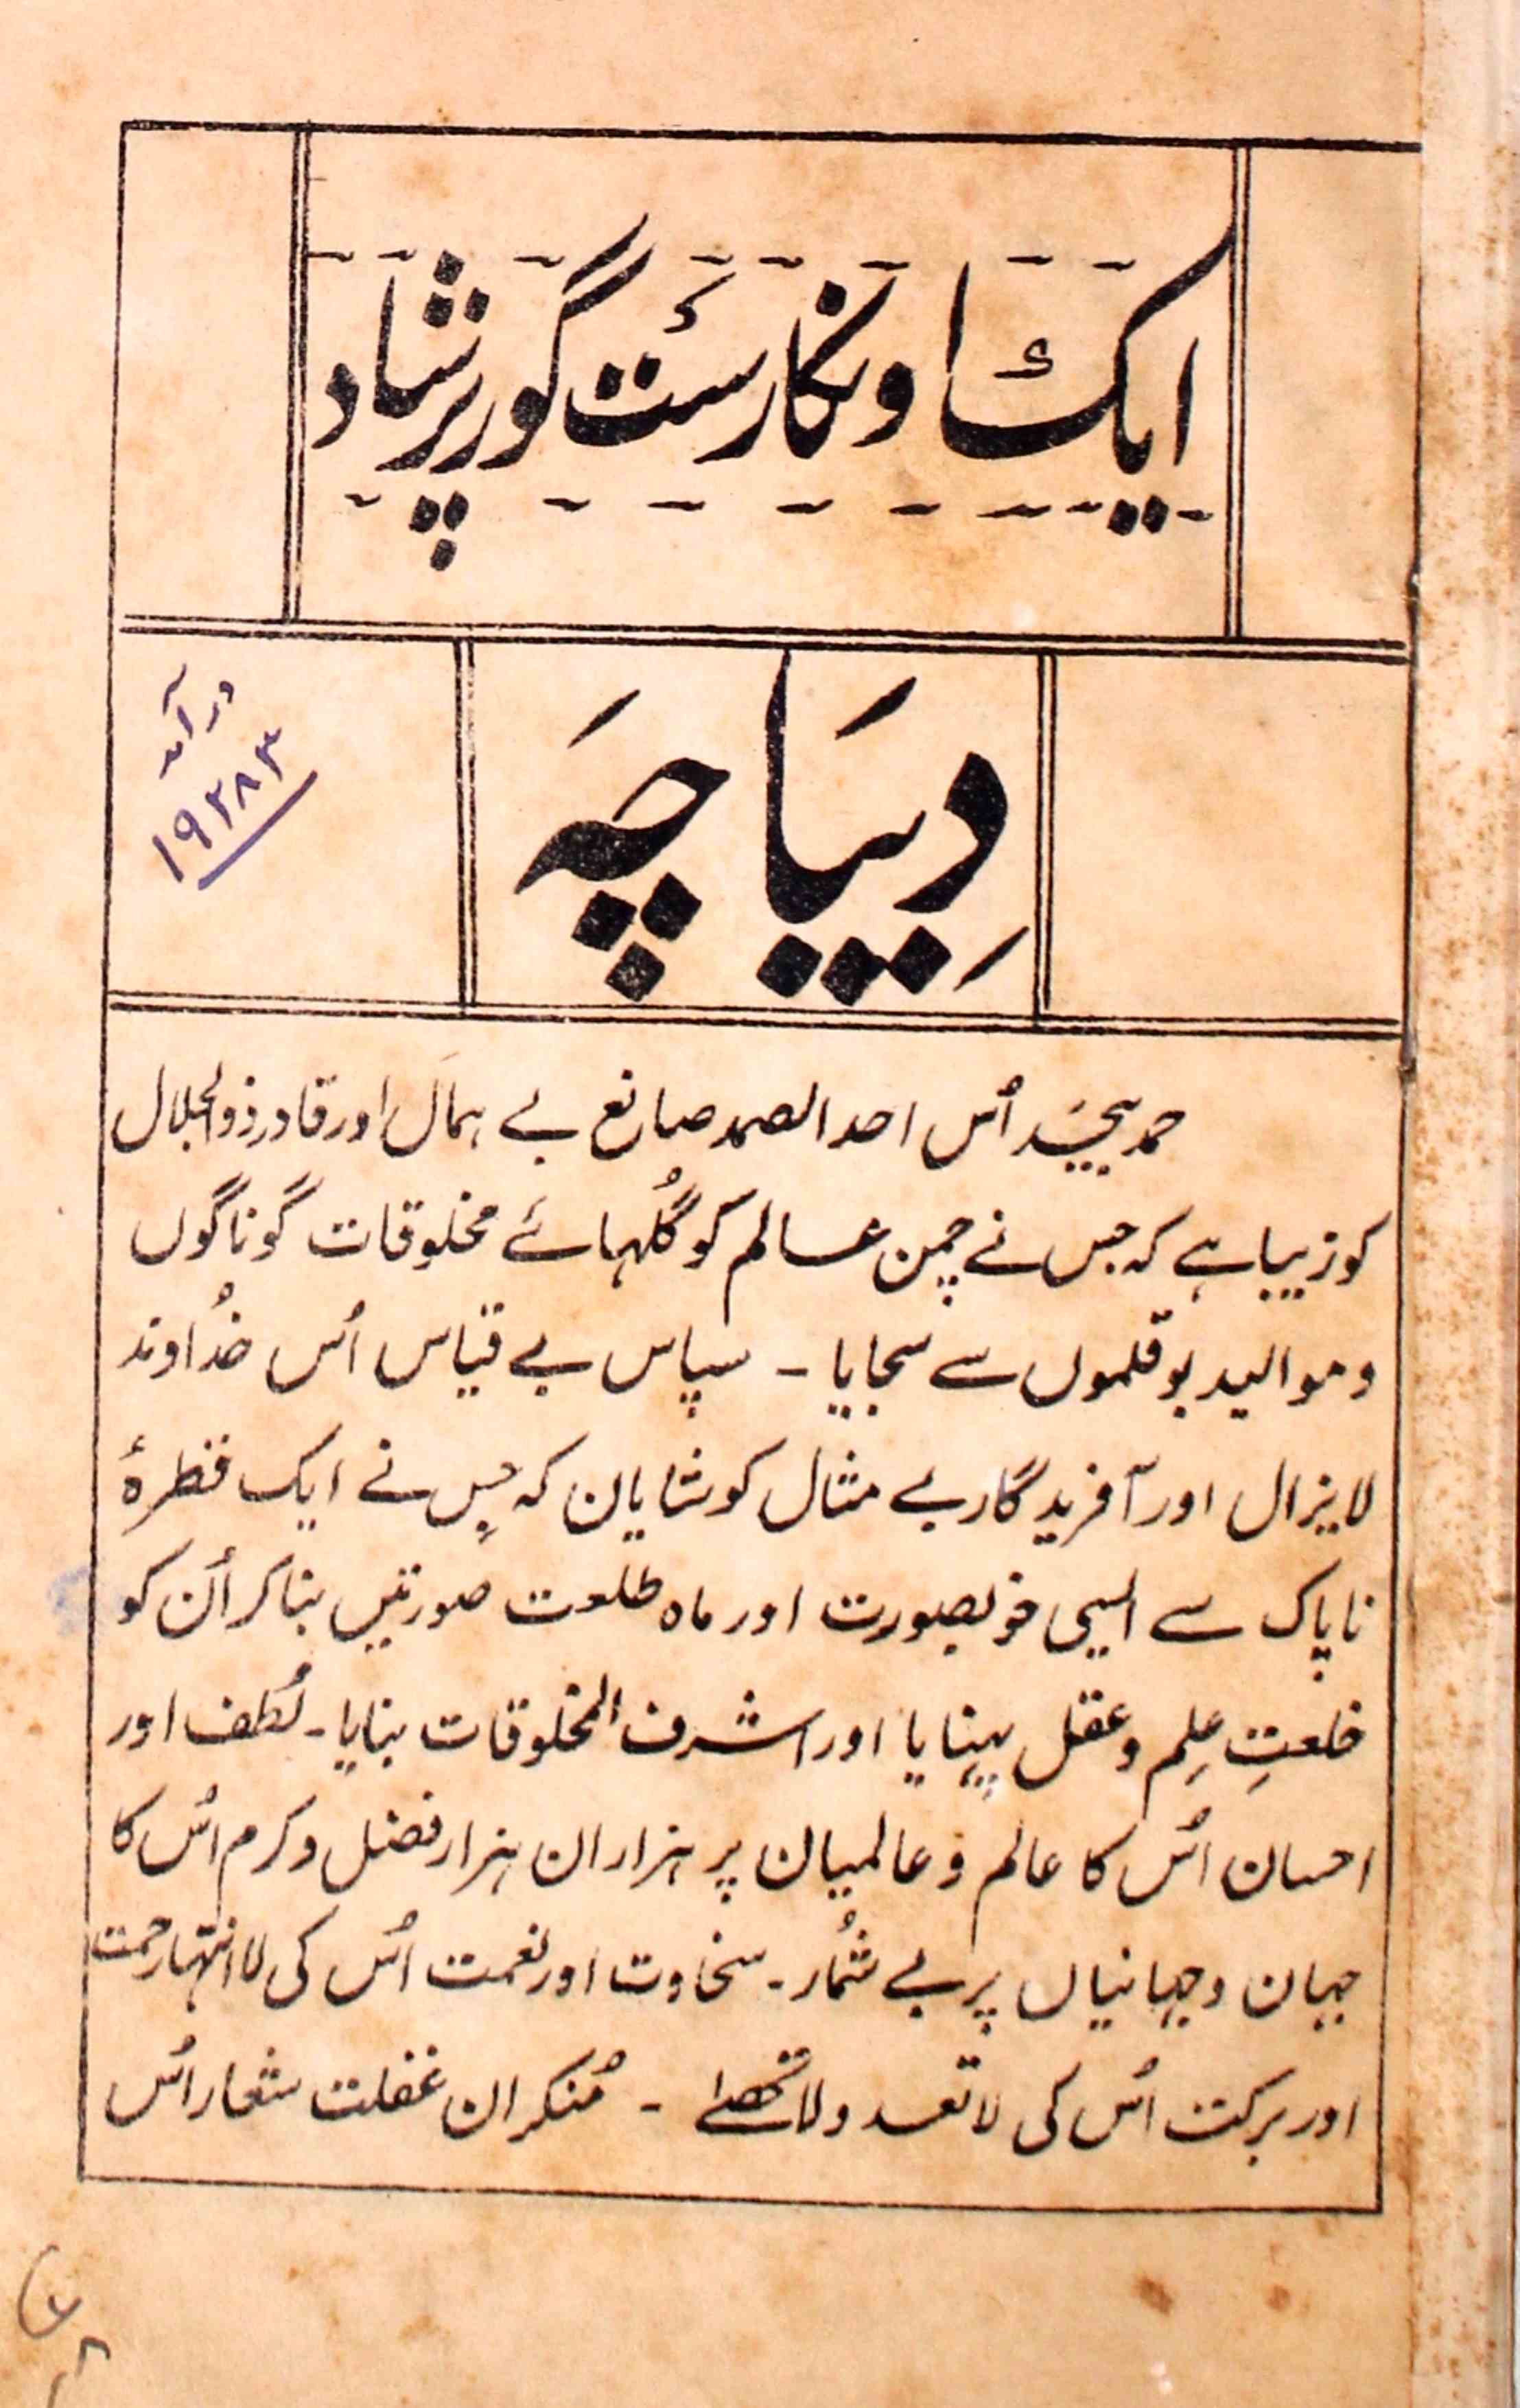 ایک اونکار ست گور پرشاد
دِیبَاچَہ
درآمد
۱۹۲۸۳
حمد بیحد اُس احد الصمد صانع بے ہمال اور قادر ذوالجلال
کو زیبا ہے کہ جس نے چمن عالم کو گُلہائے مخلوقات گوناگوں
و موالید بوقلموں سے سجایا ۔ سپاس بے قیاس اُس خُداوند
لایزال اور آفریدگار بے مثال کو شایان کہ جِس نے ایک قطرۂ
ناپاک سے ایسی خوبصورت اور ماہ طلعت صورتیں بنا کر اُن کو
خلعتِ عِلم و عقل پہنایا اور اشرف المخلوقات بنایا ۔ لُطف اور
احسان اُس کا عالم و عالمیان پر ہزاران ہزار فضل و کرم اُس کا
جہان و جہانیاں پر بے شُمار ۔ سخاوت اور نعمت اُس کی لا انتہا رحمت
اور برکت اُس کی لا تعد ولا تحصےٰ ۔ مُنکران غفلت شعار اُس